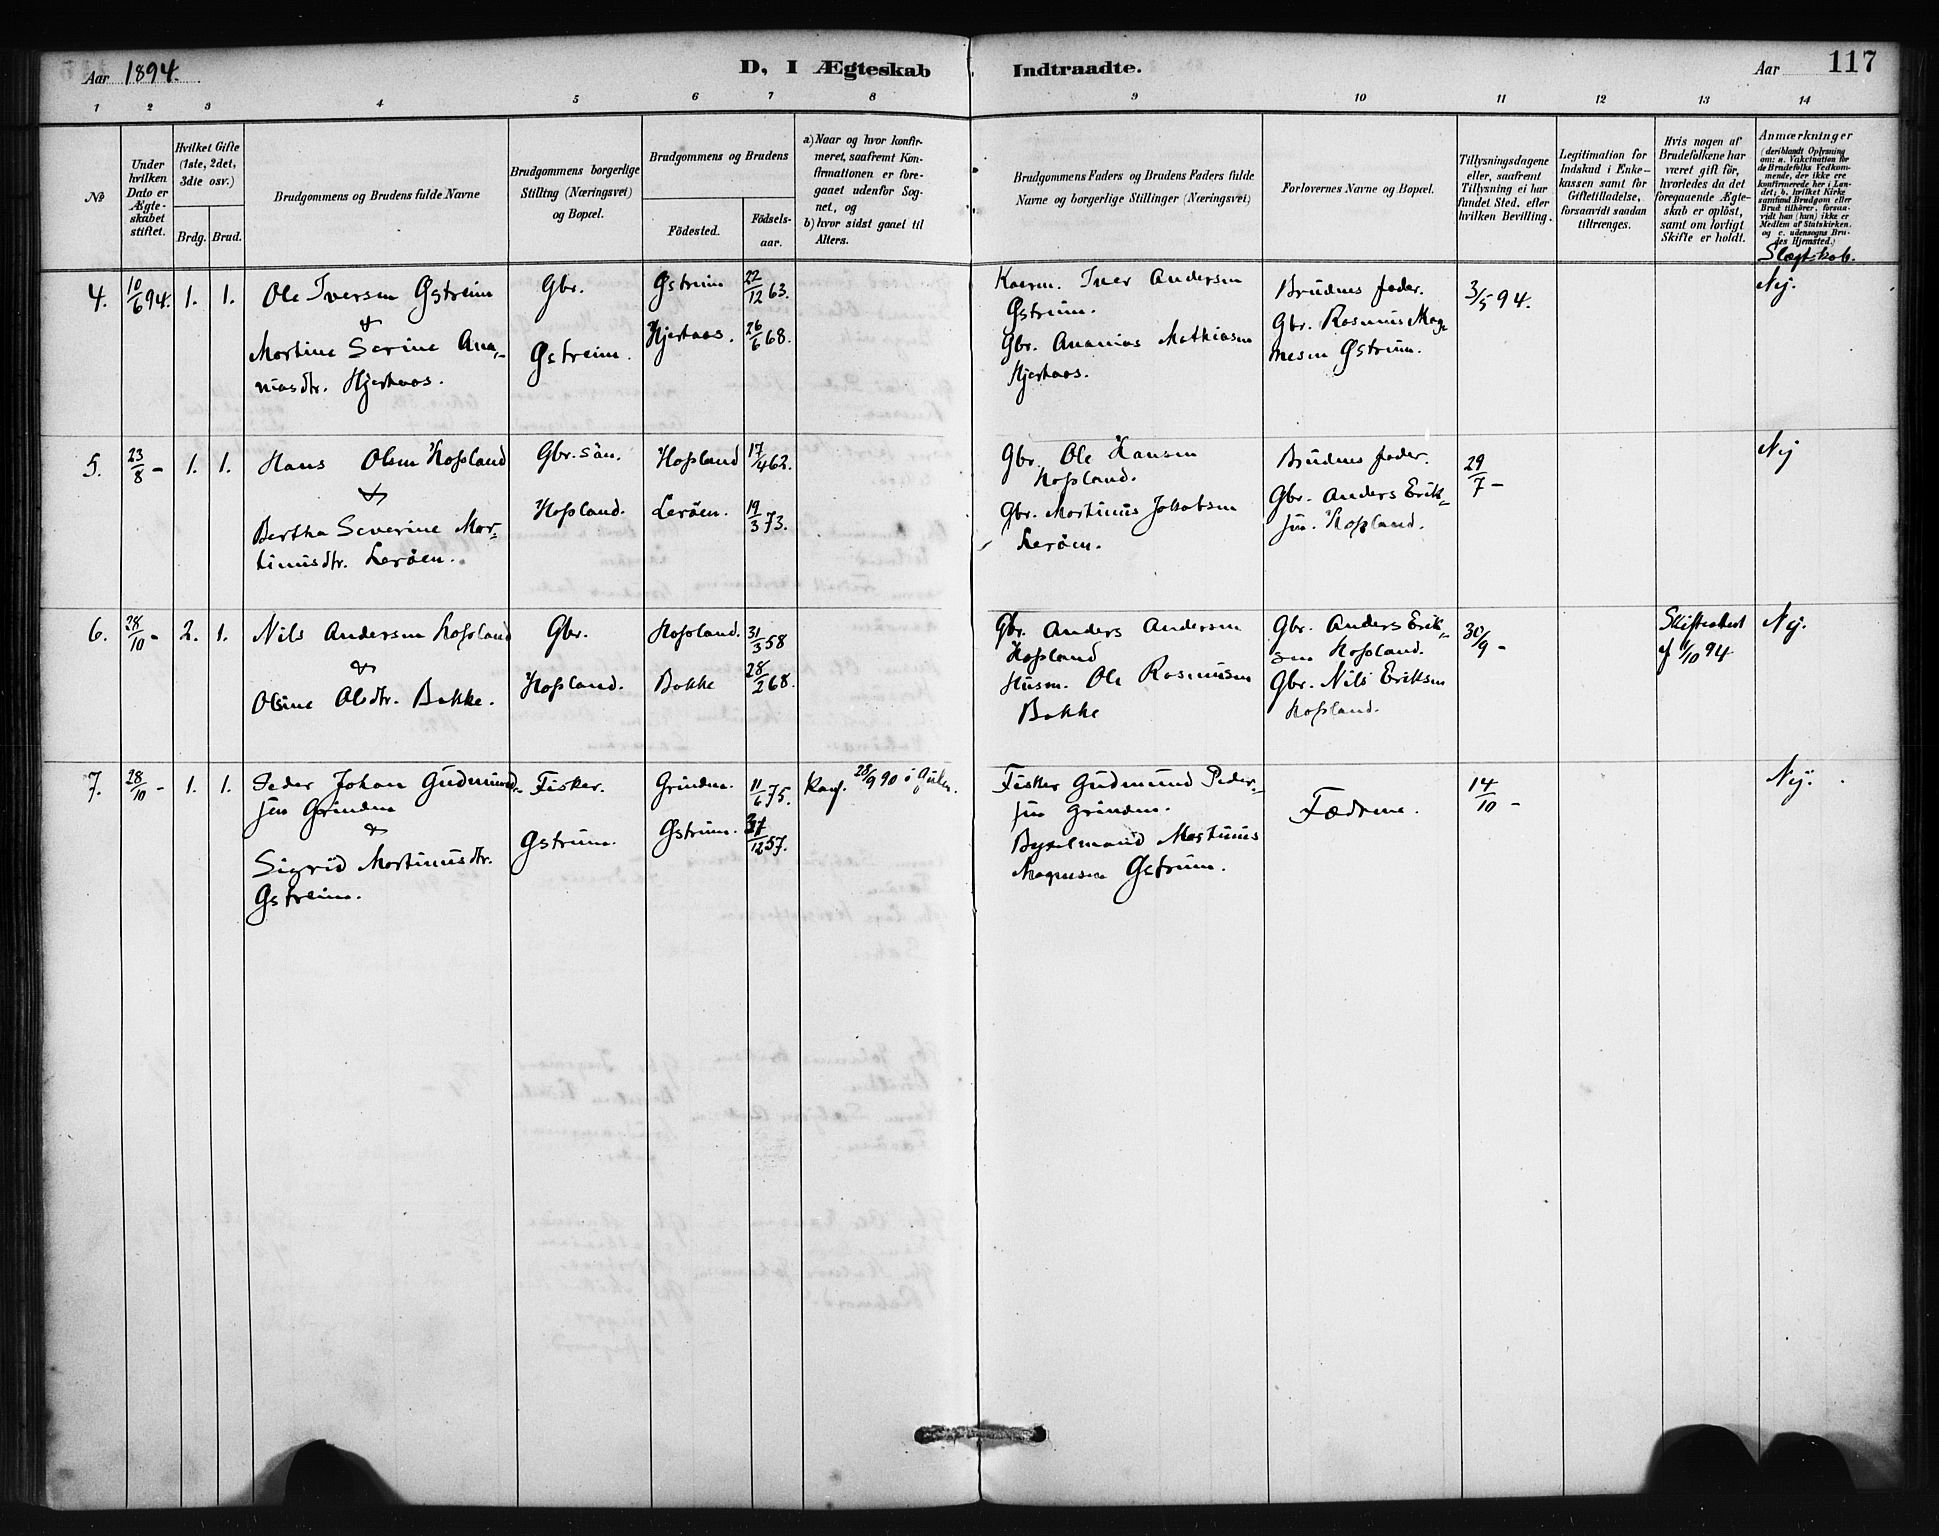 Aar 1894.
D, I Ægteskab Indtraadte.
Aar
117
1 2 3 4 5 6 7 8 9 10 11 12 13 14
No
Under hvilken Dato er Ægte-skabet stiftet.
Hvilket Gifte (1ste, 2det, 3die osv.)
Brdg. Brud.
Brudgommens og Brudens fulde Navne
Brudgommens borgerlige Stilling (Næringsvei) og Bopæl.
Brudgommens og Brudens
Födested.
Födsels-aar.
a) Naar og hvor konfir-meret, saafremt Kon-firmationen er fore-gaaet udenfor Sog-net, og
b) hvor sidst gaaet til Alters.
Brudgommens Faders og Brudens Faders fulde Navne og borgerlige Stillinger (Næringsvei)
Forlovernes Navne og Bopæl.
Tillysningsdagene eller, saafremt Tillysning ei har fundet Sted, efter hvilken Bevilling.
Legitimation for Indskud i Enke-kassen samt for Giftetilladelse, forsaavidt saadan tiltrænges.
Hvis nogen af Brudefolkene har været gift för, hvorledes da det foregaaende Ægte-skab er oplöst, samt om lovligt Skifte er holdt.
Anmærkninger (deriblandt Oplysning om: a. Vakcination for de Brudefolks Vedkom-mende, der ikke ere konfirmerede her i Lan-det; b. hvilket Kirke samfund Brudgom eller Brud tilhörer, forsaa-vidt han (hun) ikke er Medlem af Statskirken, og c. udensogns Bru-des Hjemsted.)
Slægtskab.
4. 10/6 94. 1. 1. Ole Iversen Østreim
&
Martine Serine Ana-
niasdtr. Hjertaas.
Gbr.
Østreim.
Østreim 22/12 63.
Hjertaas. 26/6 68.
Kaarm. Iver Andersen
Østreim.
Gbr. Ananias Mathiasen
Hjertaas.
Brudens fader.
Gbr. Rasmus Mag-
nesen Østreim.
3/5 94.
Nej.
5. 23/8 - 1. 1. Hans Olsen Hopland
&
Bertha Severine Mar-
tinusdtr. Leröen.
Gbr. sön.
Hopland.
Hopland 17/4 62.
Leröen. 19/3 73.
Gbr. Ole Hansen
Hopland.
Gbr. Martinus Jakobsen
Leröen.
Brudens fader.
Gbr. Anders Erik-
sen. Hopland.
29/7 -
Nej
6. 28/10 - 2. 1. Nils Andersen Hopland
&
Olsine Olsdtr. Bakke.
Gbr.
Hopland.
Hopland. 31/3 58
Bakke 28/2 68.
Gbr. Anders Andersen
Hopland
Husm. Ole Rasmusen
Bakke
Gbr. Anders Erik-
sen Hopland.
Gbr. Nils Eriksen
Hopland.
30/9 -
Skifteattest
af 1/10 94
Nej.
7. 28/10 - 1. 1. Peder Johan Gudmund-
sen Grinden
&
Sigrid Martinusdtr.
Østreim.
Fisker.
Østreim.
Grinden. 11/6 75.
Østreim. /12 57.
Konf. 28/9 90 i Gulen.
Fisker Gudmund Peder-
sen Grinden.
Bygselmand Martinus
Magnesen Østreim.
Fædrene.
14/10 -
Nej.